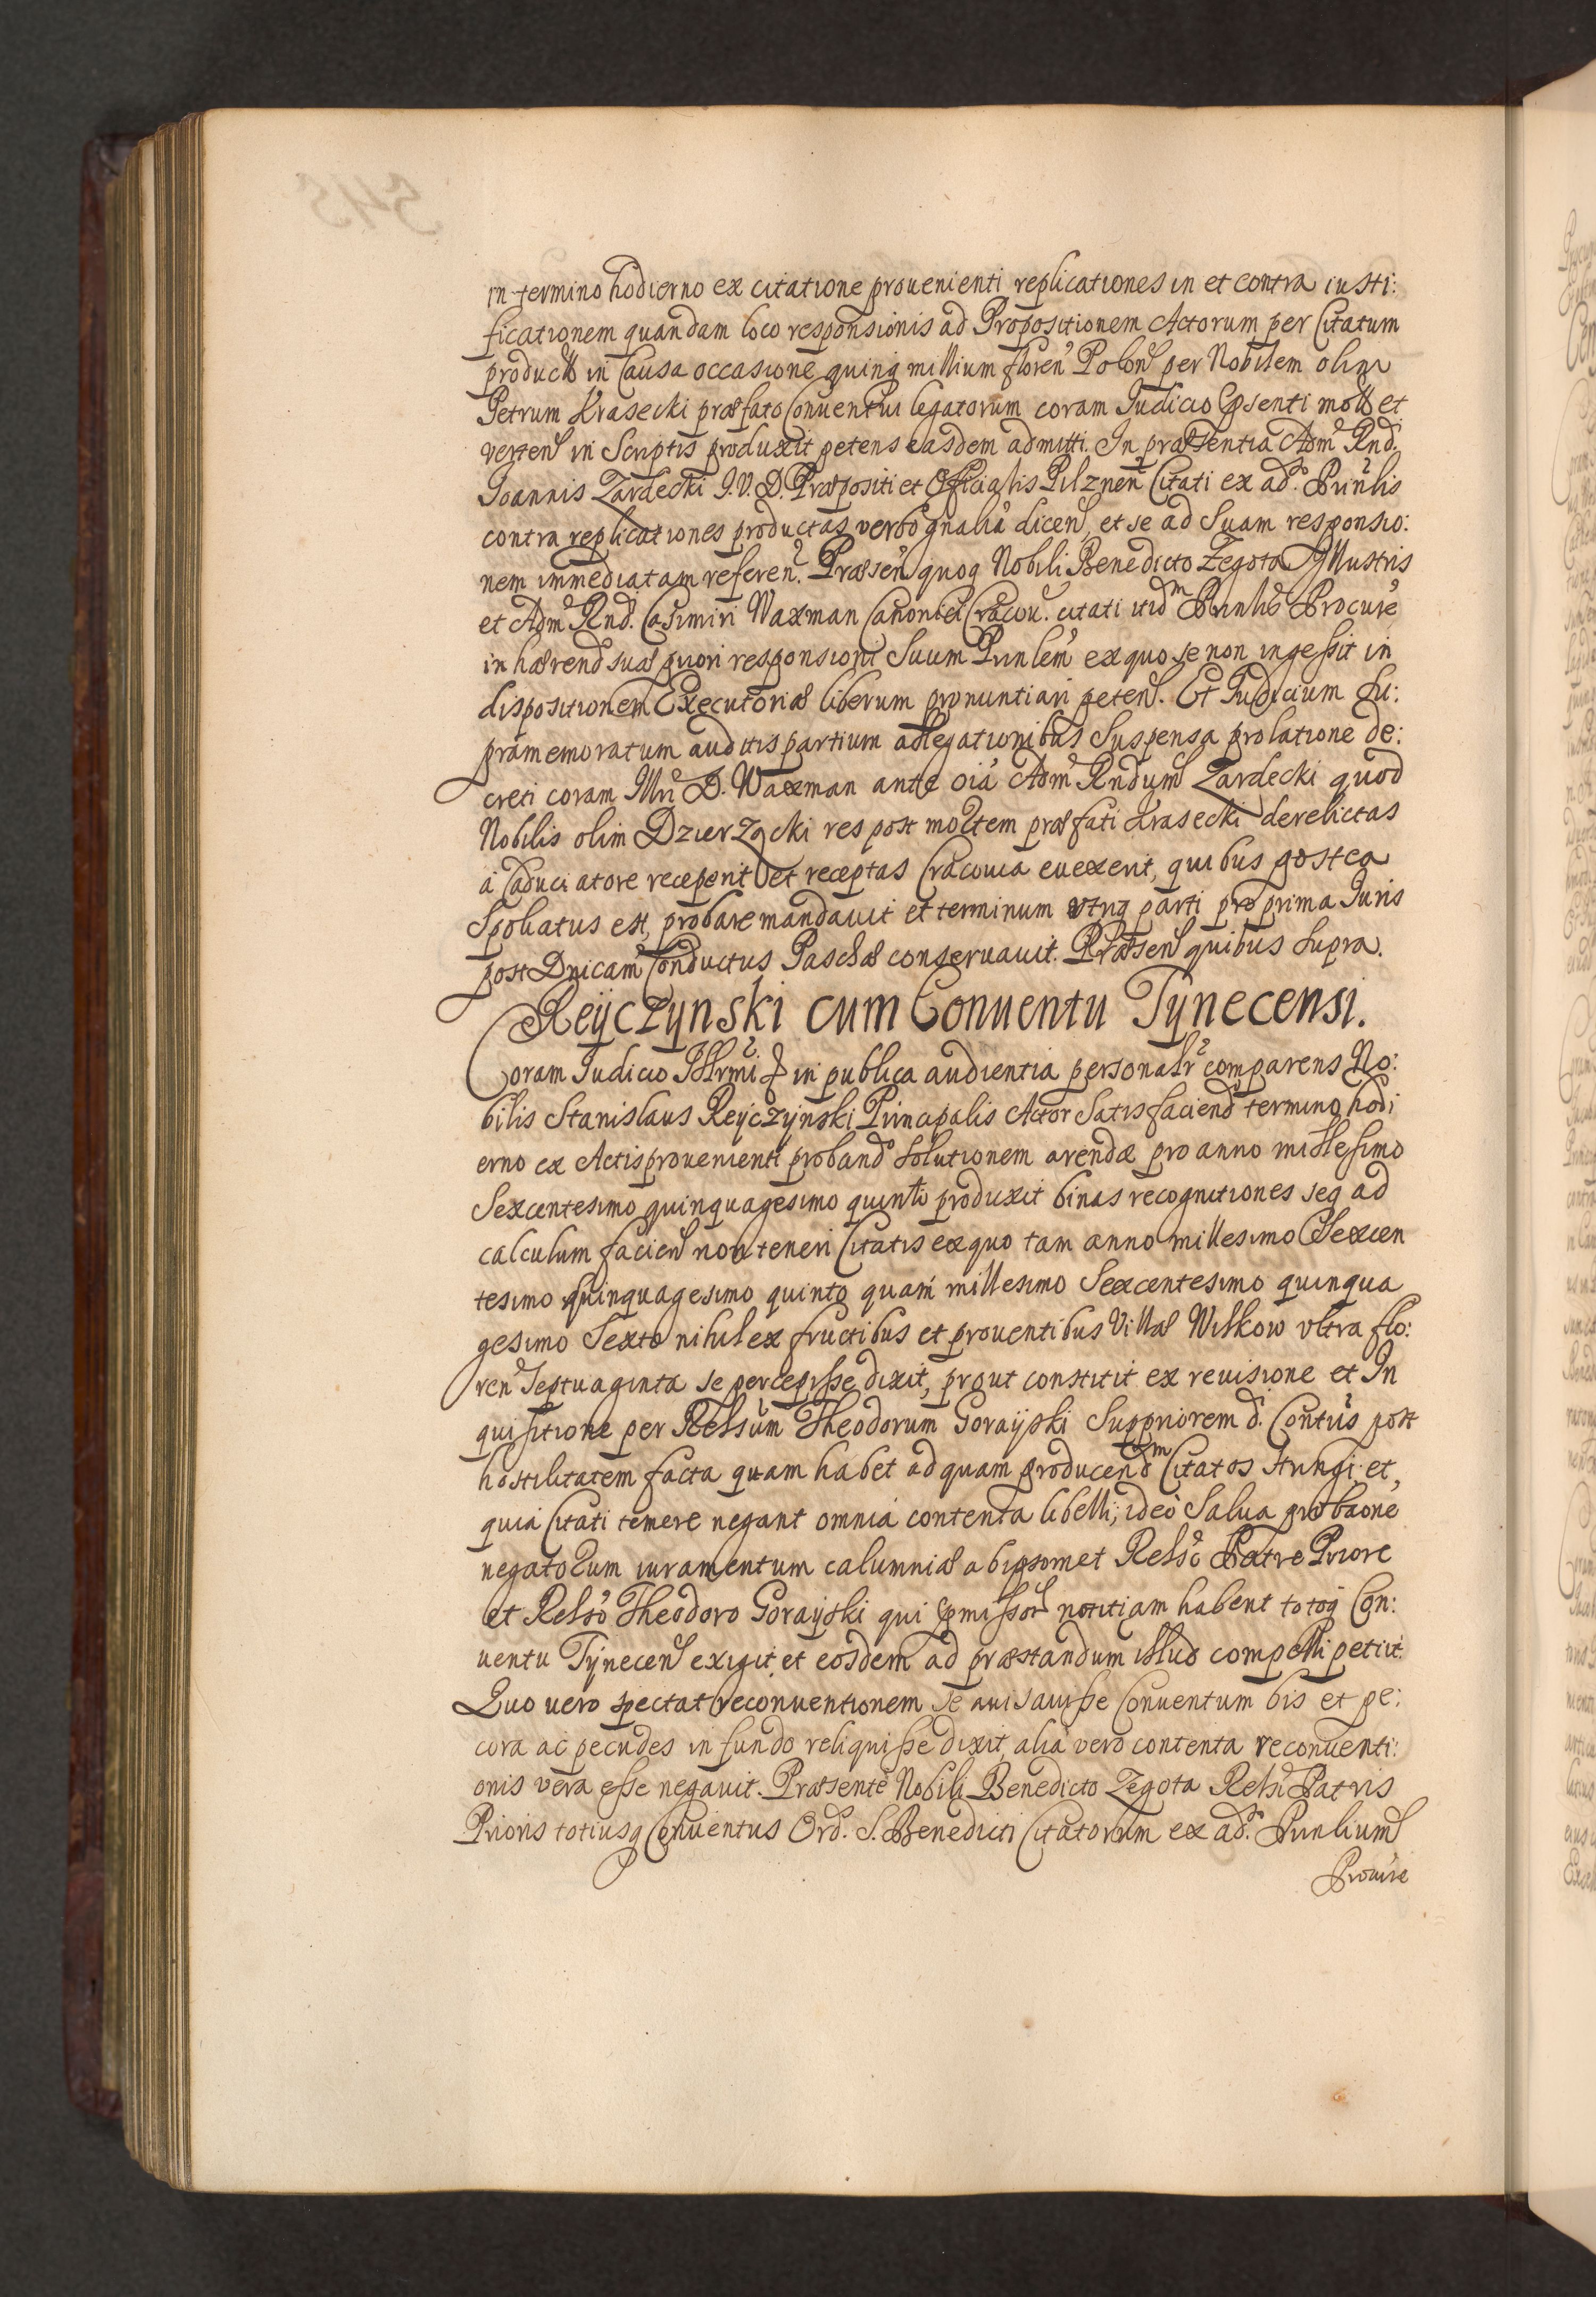 in termino hodierno ex citatione prouenienti replicationes in et contra iusti:
ficationem quandam loco responsionis ad Propositionem Actorum per Citatum
product in Causa occasione quinq millium floren Polon per Nobilem olim
Petrum Krasecki præfato Conuentui legatorum coram Iudicio psenti mot et
verten in Scriptis produxit petens easdem admitti. In præsentia Adm Rnd.
Joannis Zardecki J.V.D. Præpositi et Officialis Pilznen Citati ex ad. Prinlis
contra replicationes productas verbo gnalia dicen, et se ad Suam responsio:
nem immediatam referen. Præsen quoq Nobili Benedicto Zegota Illustris
et Adm Rnd. Casimiri Waxman Canonici Cracou. citati itidm Prinlis Procure
inhærend suæ priori responsioni Suum Prinlem ex quo se non ingessit in
dispositionem Executoriæ liberum pronuntiari peten. Et Iudicium Su:
pramemoratum auditis partium allegationibus Suspensa prolatione de:
creti coram Illri D. Waxman ante oia Adm Rndum Zardecki quod
Nobilis olim Dzierzącki res post mortem præfati Krasecki derelictas
a Caduciatore receperit et receptas Cracouia euexerit, quibus postea
Spoliatus est, probare mandauit et terminum vtriq parti pro prima Iuris
post Dnicam Conductus Paschæ conseruauit. Præsen quibus Supra.
Reÿczÿnski cum Conuentu Tÿnecensi.
Coram Iudicio Illrmi in publica audientia personalr comparens No:
bilis Stanislaus Reÿczÿnski Principalis Actor Satisfaciend termino hodi
erno ex Actis prouenienti proband Solutionem arendæ pro anno millesimo
Sexcentesimo quinquagesimo quinto produxit binas recognitiones seq ad
calculum facien non teneri Citatis ex quo tam anno millesimo Sexcen
tesimo quinquagesimo quinto quam millesimo Sexcentesimo quinqua
gesimo Sexto nihil ex fructibus et prouentibus Villæ Wilkow vltra flo:
ren Septuaginta se percepisse dixit, prout constitit ex reuisione et In
quisitione per Relsum Theodorum Goraÿski Suppriorem d. Contus post
hostilitatem facta quam habet ad quam producendm Citatos Stringi et,
quia Citati temere negant omnia contenta libelli, ideo Salua probaone
negatorum iuramentum calumniæ ab ipsomet Relso Patre Priore
et Relso Theodoro Goraÿski qui pmissor notitiam habent totoq Con:
uentu Tÿnecen exigit et eosdem ad præstandum illud compelli petiit.
Quo vero spectat reconuentionem se auisauisse Conuentum bis et pe:
cora ac pecudes in fundo reliquisse dixit, alia vero contenta reconuenti:
onis vera esse negauit. Præsente Nobili Benedicto Zegota Relsi Patris
Prioris totiusq Conuentus Ord. S. Benedicti Citatorum ex ad. Prinlium
Procure